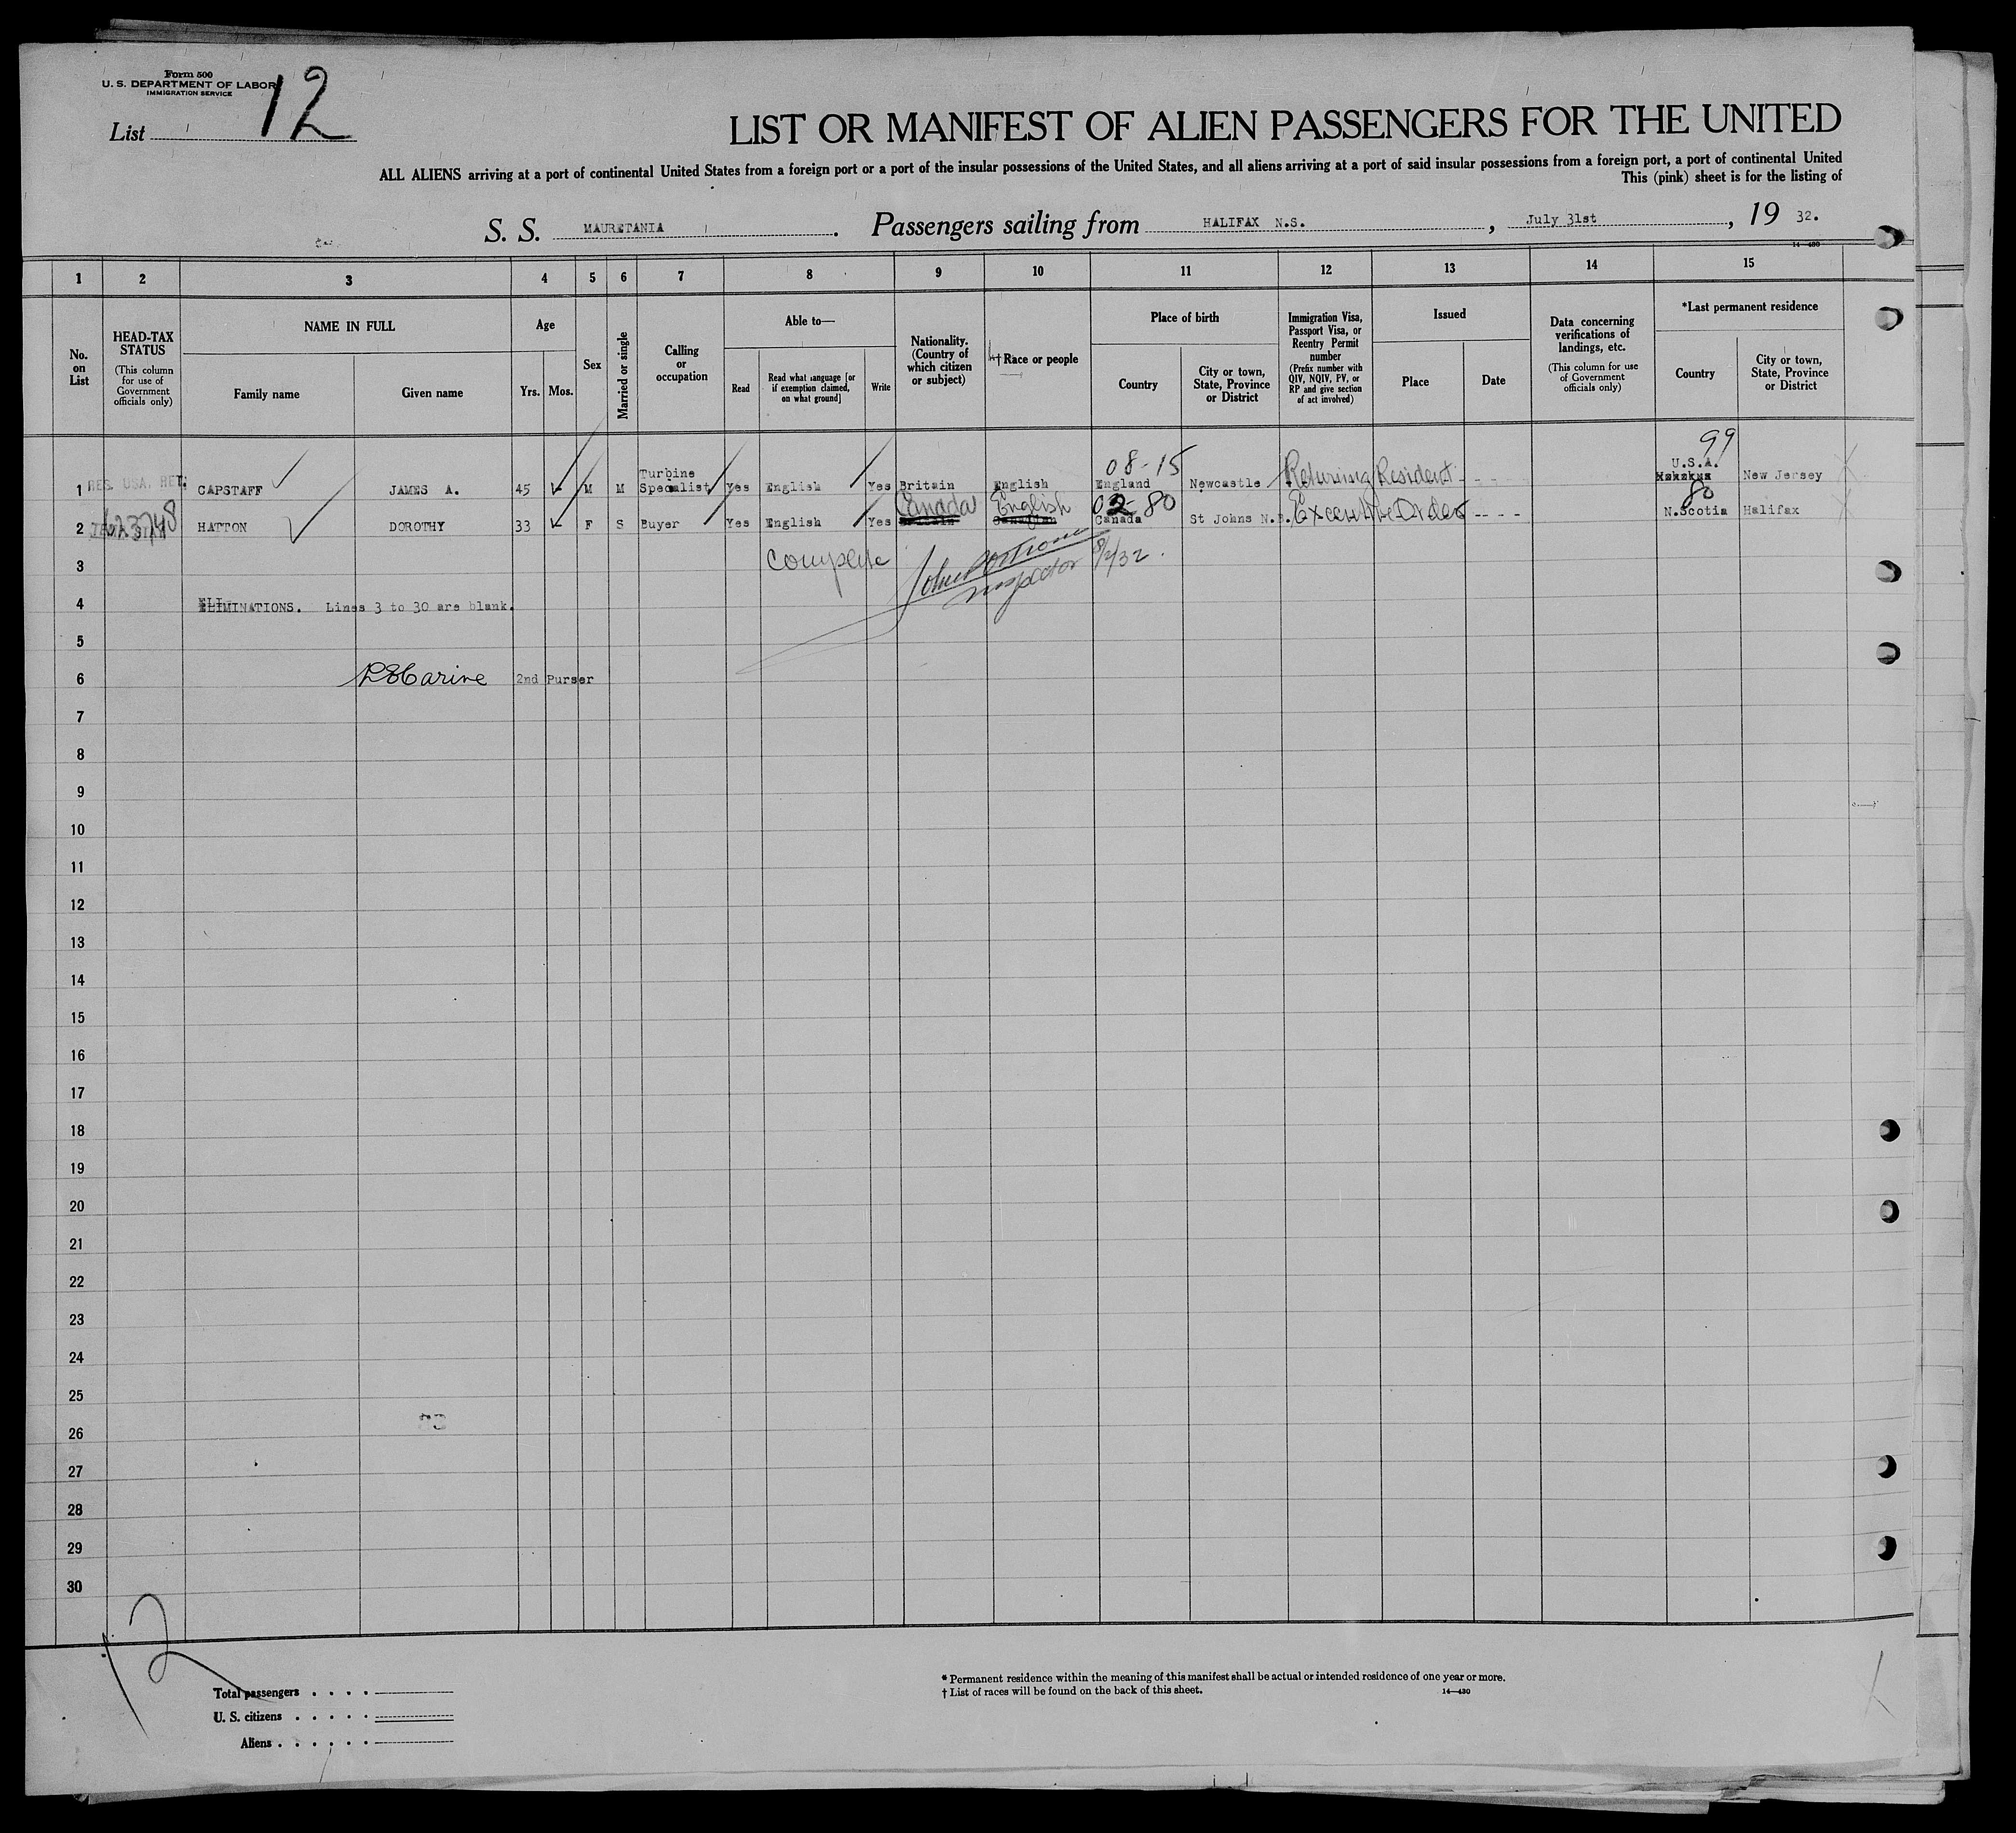 Form 500
U. S. DEPARTMENT OF LABOR
IMMIGRATION SERVICE
List 12
LIST OR MANIFEST OF ALIEN PASSENGERS FOR THE UNITED
ALL ALIENS arriving at a port of continental United States from a foreign port or a port of the insular possessions of the United States, and all aliens arriving at a port of said insular possessions from a foreign port, a port of continental United
This (pink) sheet is for the listing of
S. S. MAURETANIA. Passengers sailing from HALIFAX N.S., July 31st, 19 32.
14-430
1 2 3 4 5 6 7 8 9 10 11 12 13 14 15
HEAD-TAX STATUS (This column for use of Government officials only)
No. on List
NAME IN FULL
Family name Given name
Age
Yrs. Mos.
Sex
Married or single
Calling or occupation
Able to—
Read Read what language [or if exemption claimed, on what ground] Write
Nationality. (Country of which citizen or subject)
†Race or people
Place of birth
Country City or town, State, Province or District
Immigration Visa, Passport Visa, or Reentry Permit number (Prefix number with QIV, NQIV, PV, or RP and give section of act involved)
Issued
Place Date
Data concerning verifications of landings, etc. (This column for use of Government officials only)
*Last permanent residence
Country City or town, State, Province or District
08-15 99
1 RES. USA. RET. CAPSTAFF JAMES A. 45 M M Turbine Specalist Yes English Yes Britain English England Newcastle Returning Resident - - - U.S.A. New Jersey
Canada English 02-80 80
2 HATTON DOROTHY 33 F S Buyer Yes English Yes Britain Canadian Canada St Johns N.B. Executive Order - - - - N.Scotia Halifax
3 Complete Inspector 8/1/32.
4 ELIMINATIONS. Lines 3 to 30 are blank.
5
6 2nd Purser
7
8
9
10
11
12
13
14
15
16
17
18
19
20
21
22
23
24
25
26
27
28
29
30
12
Total passengers . . . .
U. S. citizens . . . . .
Aliens . . . . . .
* Permanent residence within the meaning of this manifest shall be actual or intended residence of one year or more.
† List of races will be found on the back of this sheet.
14-430